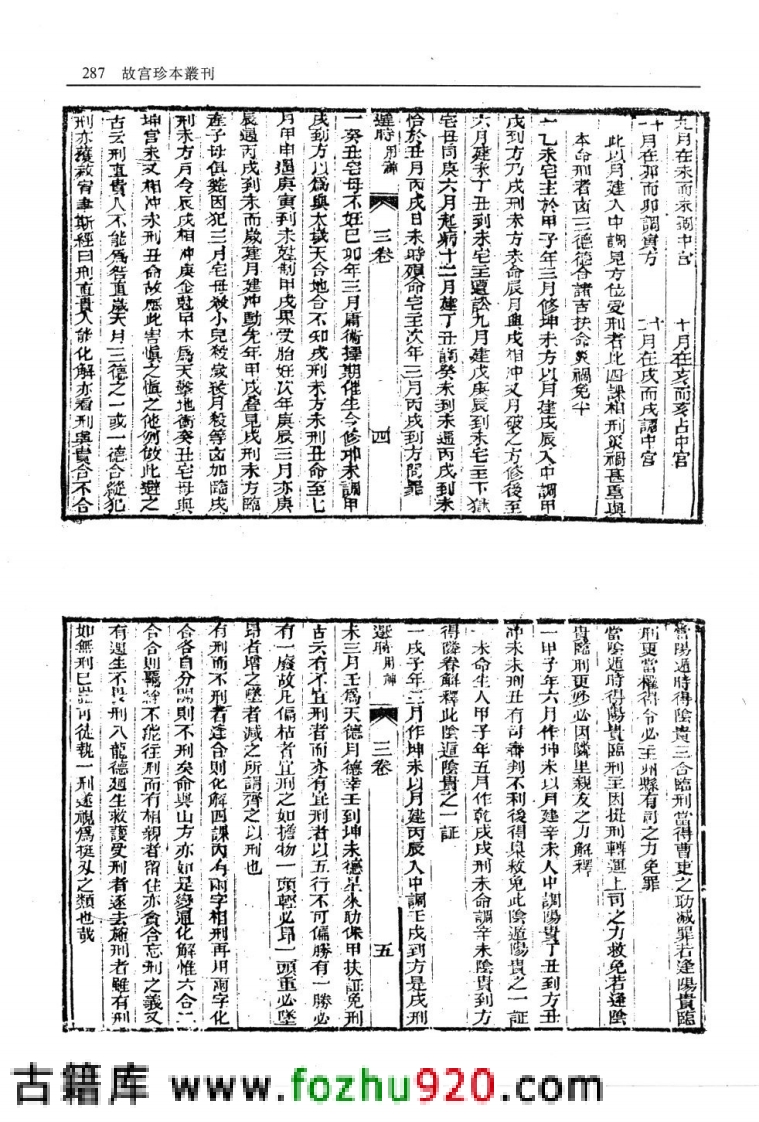 287 故宫珍本叢刊
九月在未而未調中宮 十月在亥而亥占中宮
十一月在卯而卯調寅方 十二月在戌而戌調中宮
此以月建入中調見方位受刑者此四課相刑災禍甚重與
本命刑者凶三德德合諸吉扶命災禍免半
一乙未宅主於甲子年三月修坤未方以月建戊辰入中調甲
戌到方乃戌刑未方未命辰月與戌相冲又月破之方修後至
六月建未丁丑到未宅主遭訟九月建戌庚辰到未宅主下獄
宅母同庚六月起病十二月建丁丑調癸未到未遁丙戌到未
恰於丑月丙戌日未時殞命宅主次年三月丙戌到方問罪
選時用觧 三卷 四
一癸丑宅母不妊己卯年三月庸術擇期催生令修坤未調甲
戌到方以為與太歲天合地合不知戌刑未方未刑丑命至七
月甲申遁庚寅到未尅制甲戌果受胎妊次年庚辰三月亦庚
辰遁丙戌到未而歲建月建冲動先年甲戌疊見戌刑未方臨
產子母俱斃因犯三月宅母殺小兒殺歲殺月殺等凶加臨戌
刑未方戶令辰戌相冲庚金尅甲木為天擊地衝癸丑宅母與
坤宮未又相冲未刑丑命故應此害慎之慎之他例倣此避之
古云刑直貴人不能為咎直歲天月三德之一或一德合縱犯
刑亦獲赦宥韋斯經曰刑直貴人能化解亦看刑與貴合不合
當陽遁時得陰貴三合臨刑當得曹吏之助減罪若逢陽貴臨
刑更當權得令必主州縣有司之力免罪
當陰遁時得陽貴臨刑主因提刑轉運上司之力救免若逢陰
貴臨刑更妙必因隣里親友之力解釋
一甲子年六月作坤未以月建辛未入中調陽貴丁丑到方丑
冲未未刑丑有司審判不利後得臬救免此陰遁陽貴之一証
未命生人甲子年五月作乾戌戌刑未命調辛未陰貴到方
得陰眷解釋此陰遁陰貴之一証
一戊子年三月作坤未以月建丙辰入中調壬戌到方是戌刑
選時用觧 三卷 五
未三月壬為天德月德幸壬到坤未德星來助保甲扶証免刑
古云有不宜刑者而亦有宜刑者以五行不可偏勝有一勝必
有一廢故凡偏枯者宜刑之如擔物一頭輕必昂一頭重必墜
昂者增之墜者減之所謂齊之以刑也
有刑而不刑者逢合則化解四課內有兩字相刑再用兩字化
合各自分開則不刑矣命與山方亦如是變通化解惟六合二
合合則羈絆不能往刑而有相親者留住亦貪合忘刑之義又
有遇生不畏刑入龍德遇生救護受刑者逐去施刑者雖有刑
如無刑已豈可徒執一刑遂視為挺刃之類也哉
古籍库 www.fozhu920.com